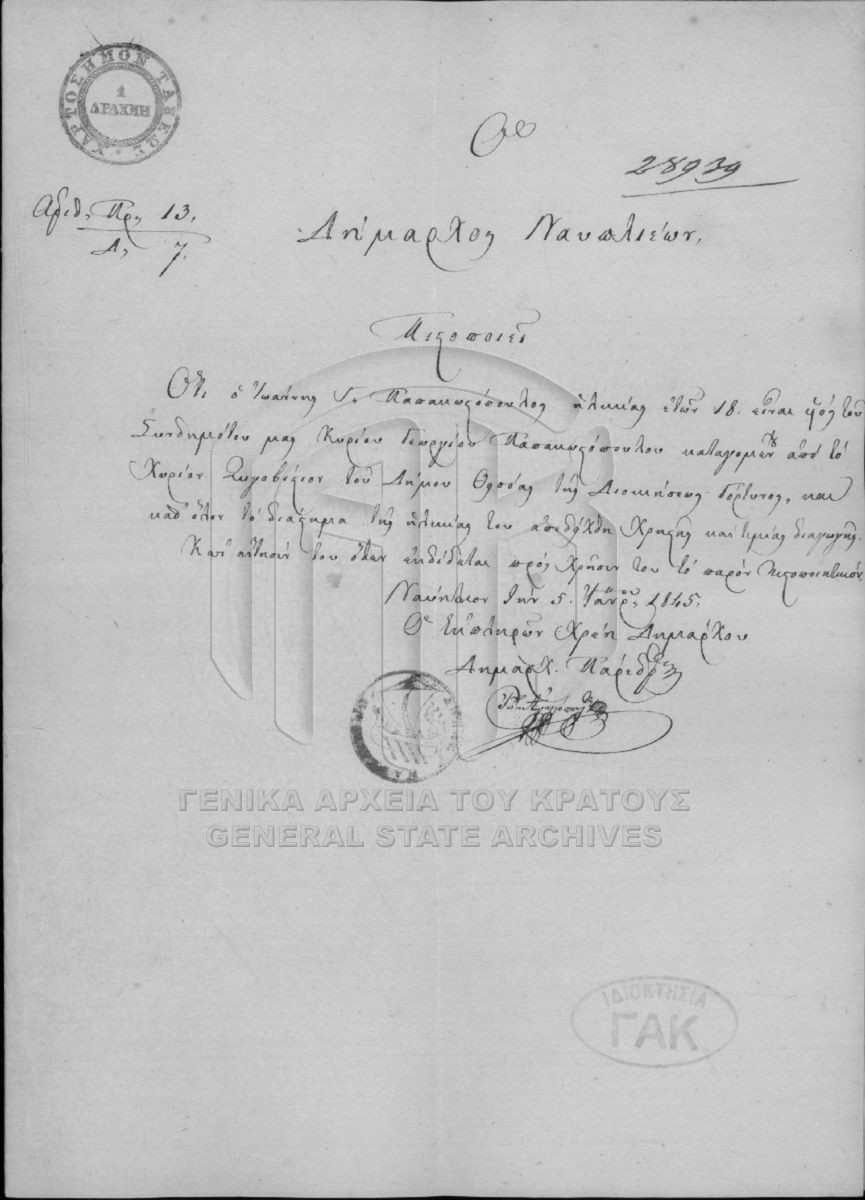 ΧΑΡΤΟΣΗΜΟΝ ΤΑΞΕΩΣ
1
ΔΡΑΧΜΗ
Ὁ
28939
Ἀριθ. Πρ. 13.
Δ. 7.
Δήμαρχος Ναυπλιέων.
Πιστοποιεῖ
Ὅτι ὁ Ἰωάννης Γ. Παπακωστόπουλος ἡλικίας ἐτῶν 18. εἶναι υἱός τοῦ
Συνδημότου μας Κυρίου Γεωργίου Παπακωστόπουλου καταγομένου ἀπό τό
Χωρίον Ζυγοβίστιον τοῦ Δήμου Θισόας τῆς Διοικήσεως Γόρτυνος, καὶ
καθ' ὅλον τό διάστημα τῆς ἡλικίας του ἀπεδείχθη Χρηστῆς καὶ τιμίας διαγωγῆς.
Κατ' αἴτησίν του ὅθεν ἐκδίδεται πρός Χρῆσιν του τό παρόν πιστοποιητικόν.
Ναύπλιον τὴν 5. Ἰαννουρ. 1845.
Ὁ Ἐκπληρῶν Χρέη Δημάρχου
Δημαρχ. Πάρεδρος
ΓΕΝΙΚΑ ΑΡΧΕΙΑ ΤΟΥ ΚΡΑΤΟΥΣ
GENERAL STATE ARCHIVES
ΙΔΙΟΚΤΗΣΙΑ
ΓΑΚ